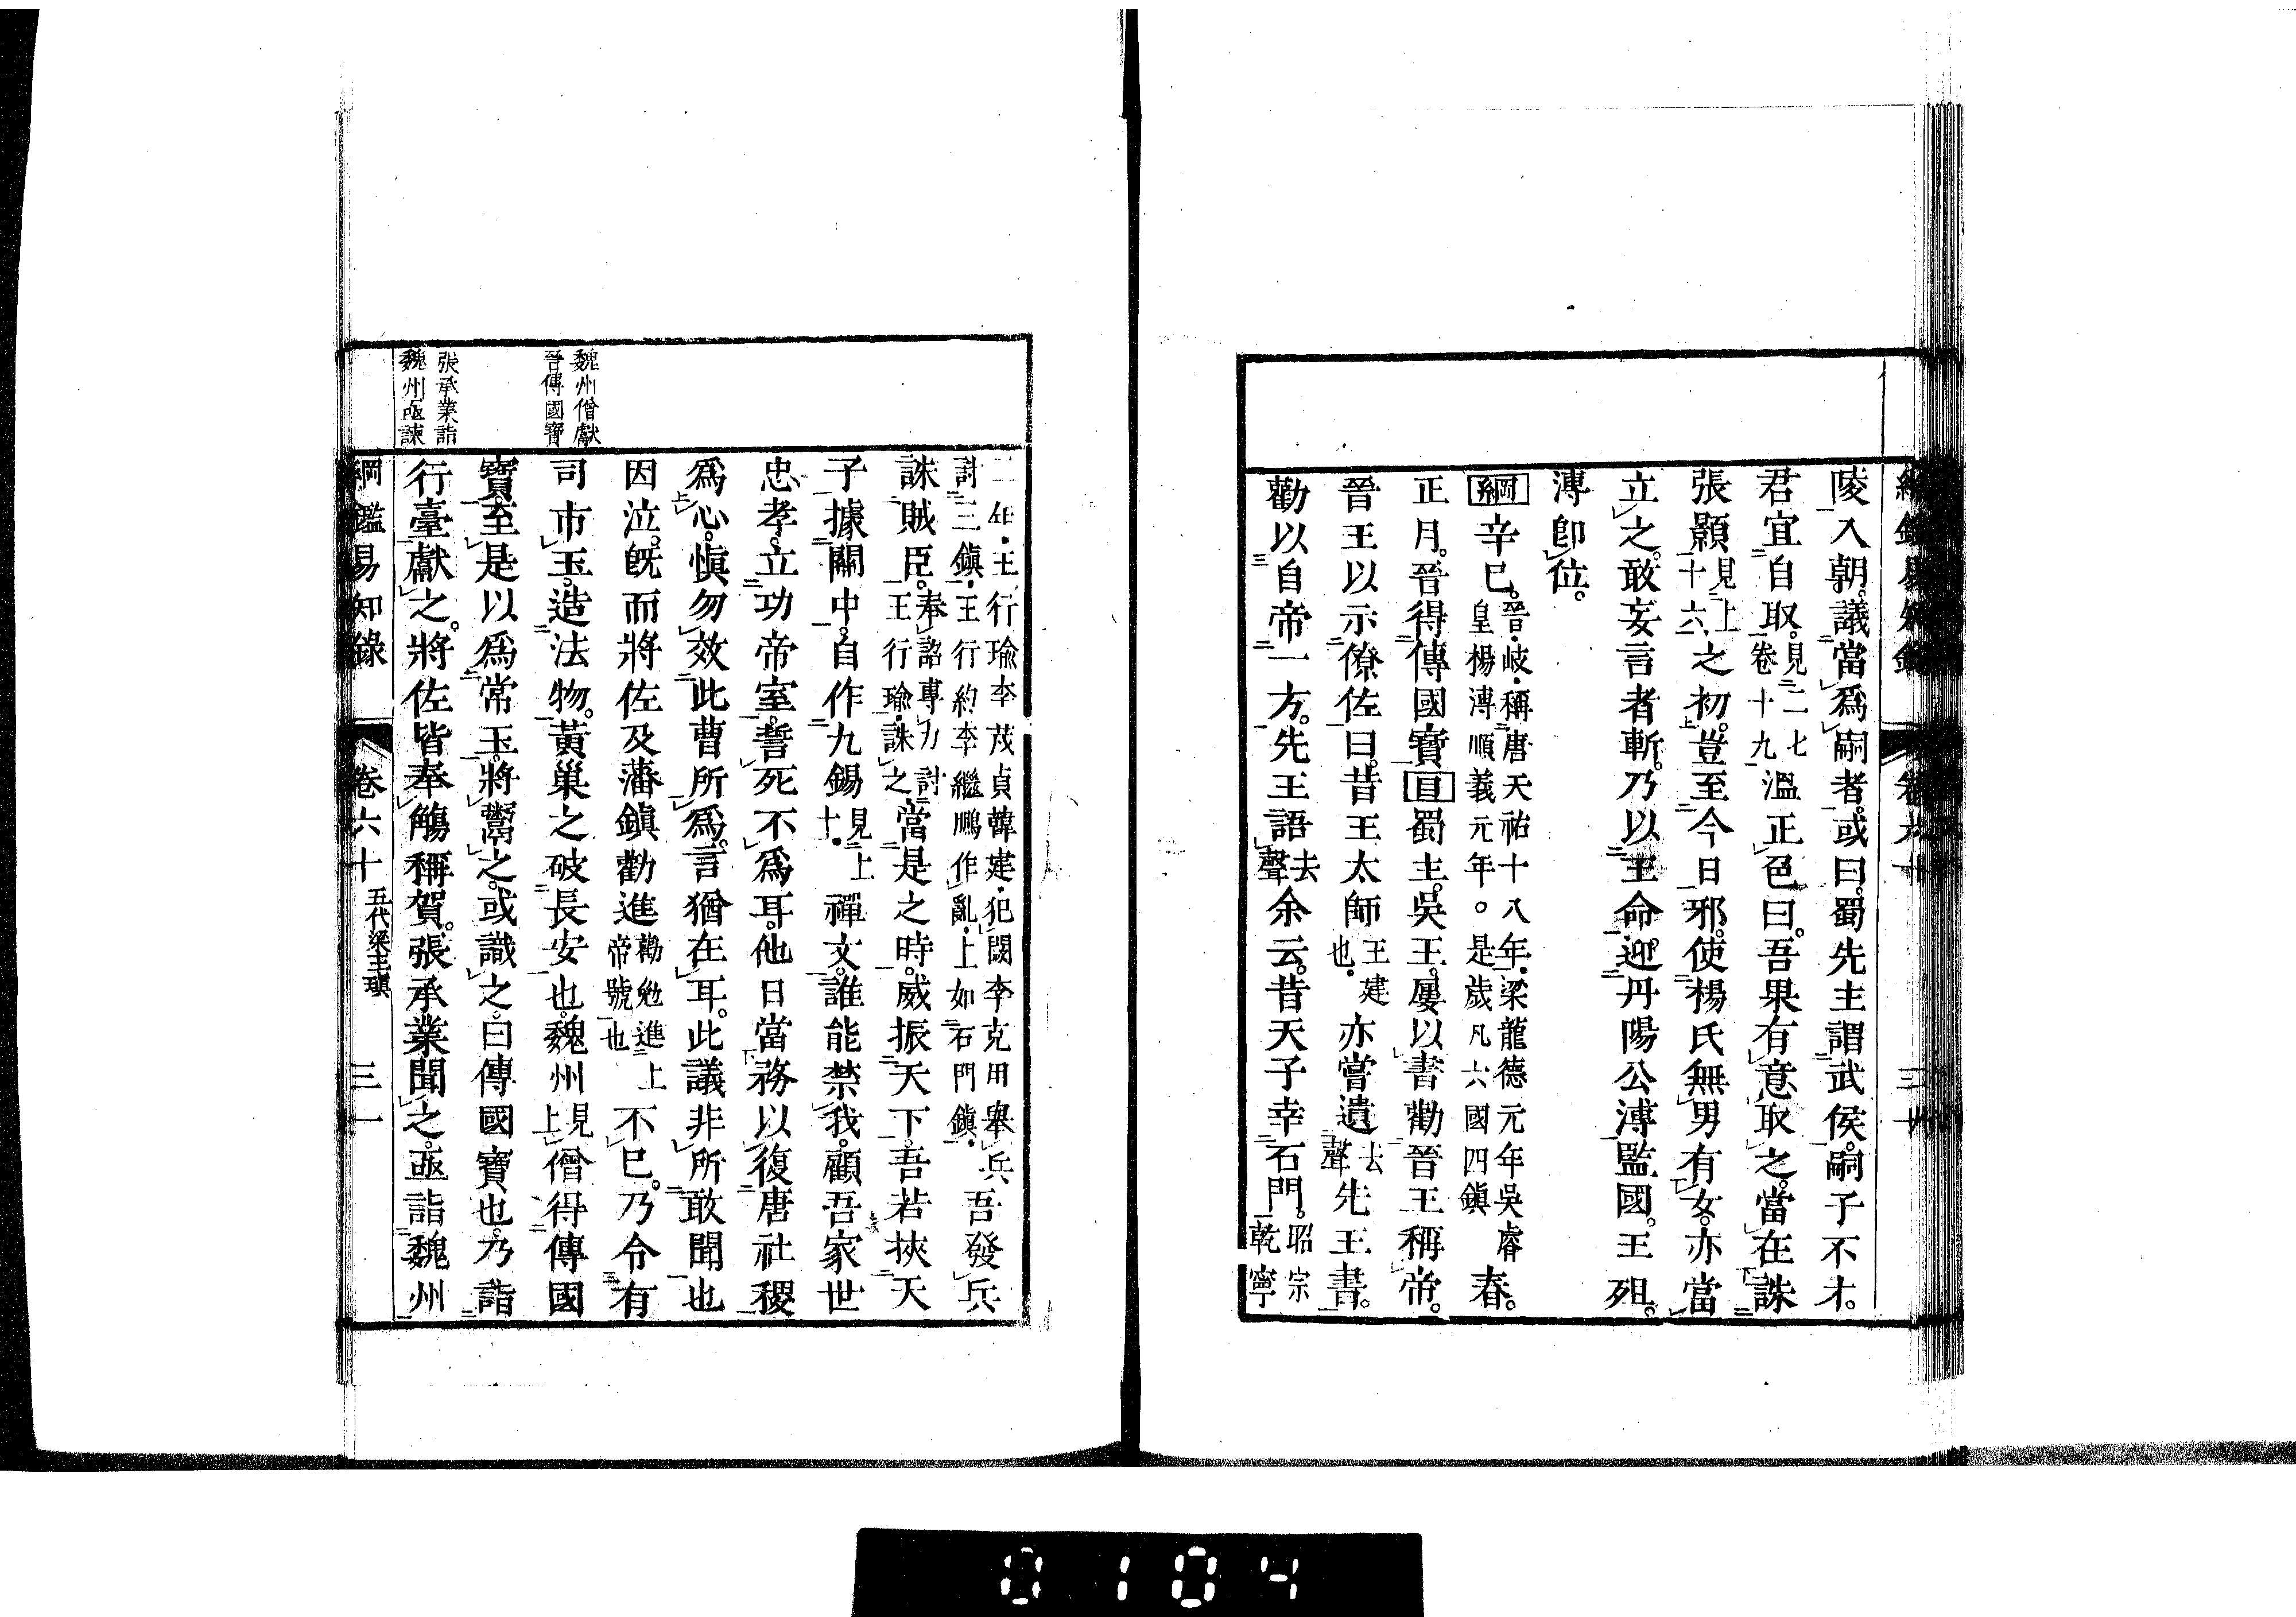 陵入朝。議當爲嗣者。或曰。蜀先主謂武侯。嗣子不才。
君宜自取。見二七卷十九溫正色曰。吾果有意取之。當在誅
張顥見上十六之初。豈至今日邪。使楊氏無男有女。亦當
立之。敢妄言者斬。乃以王命迎丹陽公溥監國。王殂。
溥卽位。
綱辛巳。晉岐稱唐天祐十八年梁龍德元年吳睿皇楊溥順義元年。是歲凡六國四鎭春。
正月。晉得傳國寶目蜀主。吳王。屢以書勸晉王稱帝。
晉王以示僚佐曰。昔王太師王建也亦嘗遺去聲先王書。
勸以自帝一方。先王語去聲余云。昔天子幸石門。昭宗乾寧
魏州僧獻
晉傳國寶
張承業詣
魏州亟諫
二年王行瑜李茂貞韓建犯闕李克用舉兵討三鎭王行約李繼鵬作亂上如石門鎭吾發兵
誅賊臣。奉詔專力討王行瑜誅之當是之時。威振天下。吾若挾天
子據關中。自作九錫見上十禪文。誰能禁我。顧吾家世
忠孝。立功帝室。誓死不爲耳。他日當務以復唐社稷
爲心。愼勿效此曹所爲。言猶在耳。此議非所敢聞也
因泣。旣而將佐及藩鎭勸進勸勉進上帝號也不已。乃令有
司市玉。造法物。黃巢之破長安也。魏州見上僧得傳國
寶。至是以爲常玉。將鬻之。或識之。曰傳國寶也。乃詣
行臺獻之。將佐皆奉觴稱賀。張承業聞之。亟詣魏州
綱鑑易知錄 卷六十 五代梁主瑱 三一